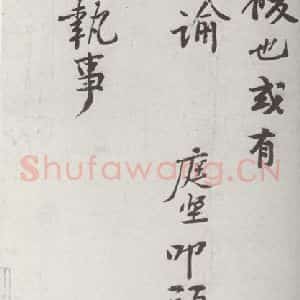 也或有
論 庭坚叩
執事
Shufawang.CN